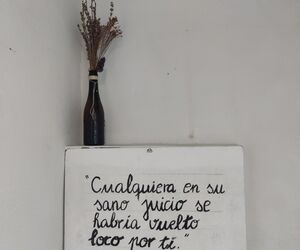 "Cualquiera en su
sano juicio se
habría vuelto
loco por ti."